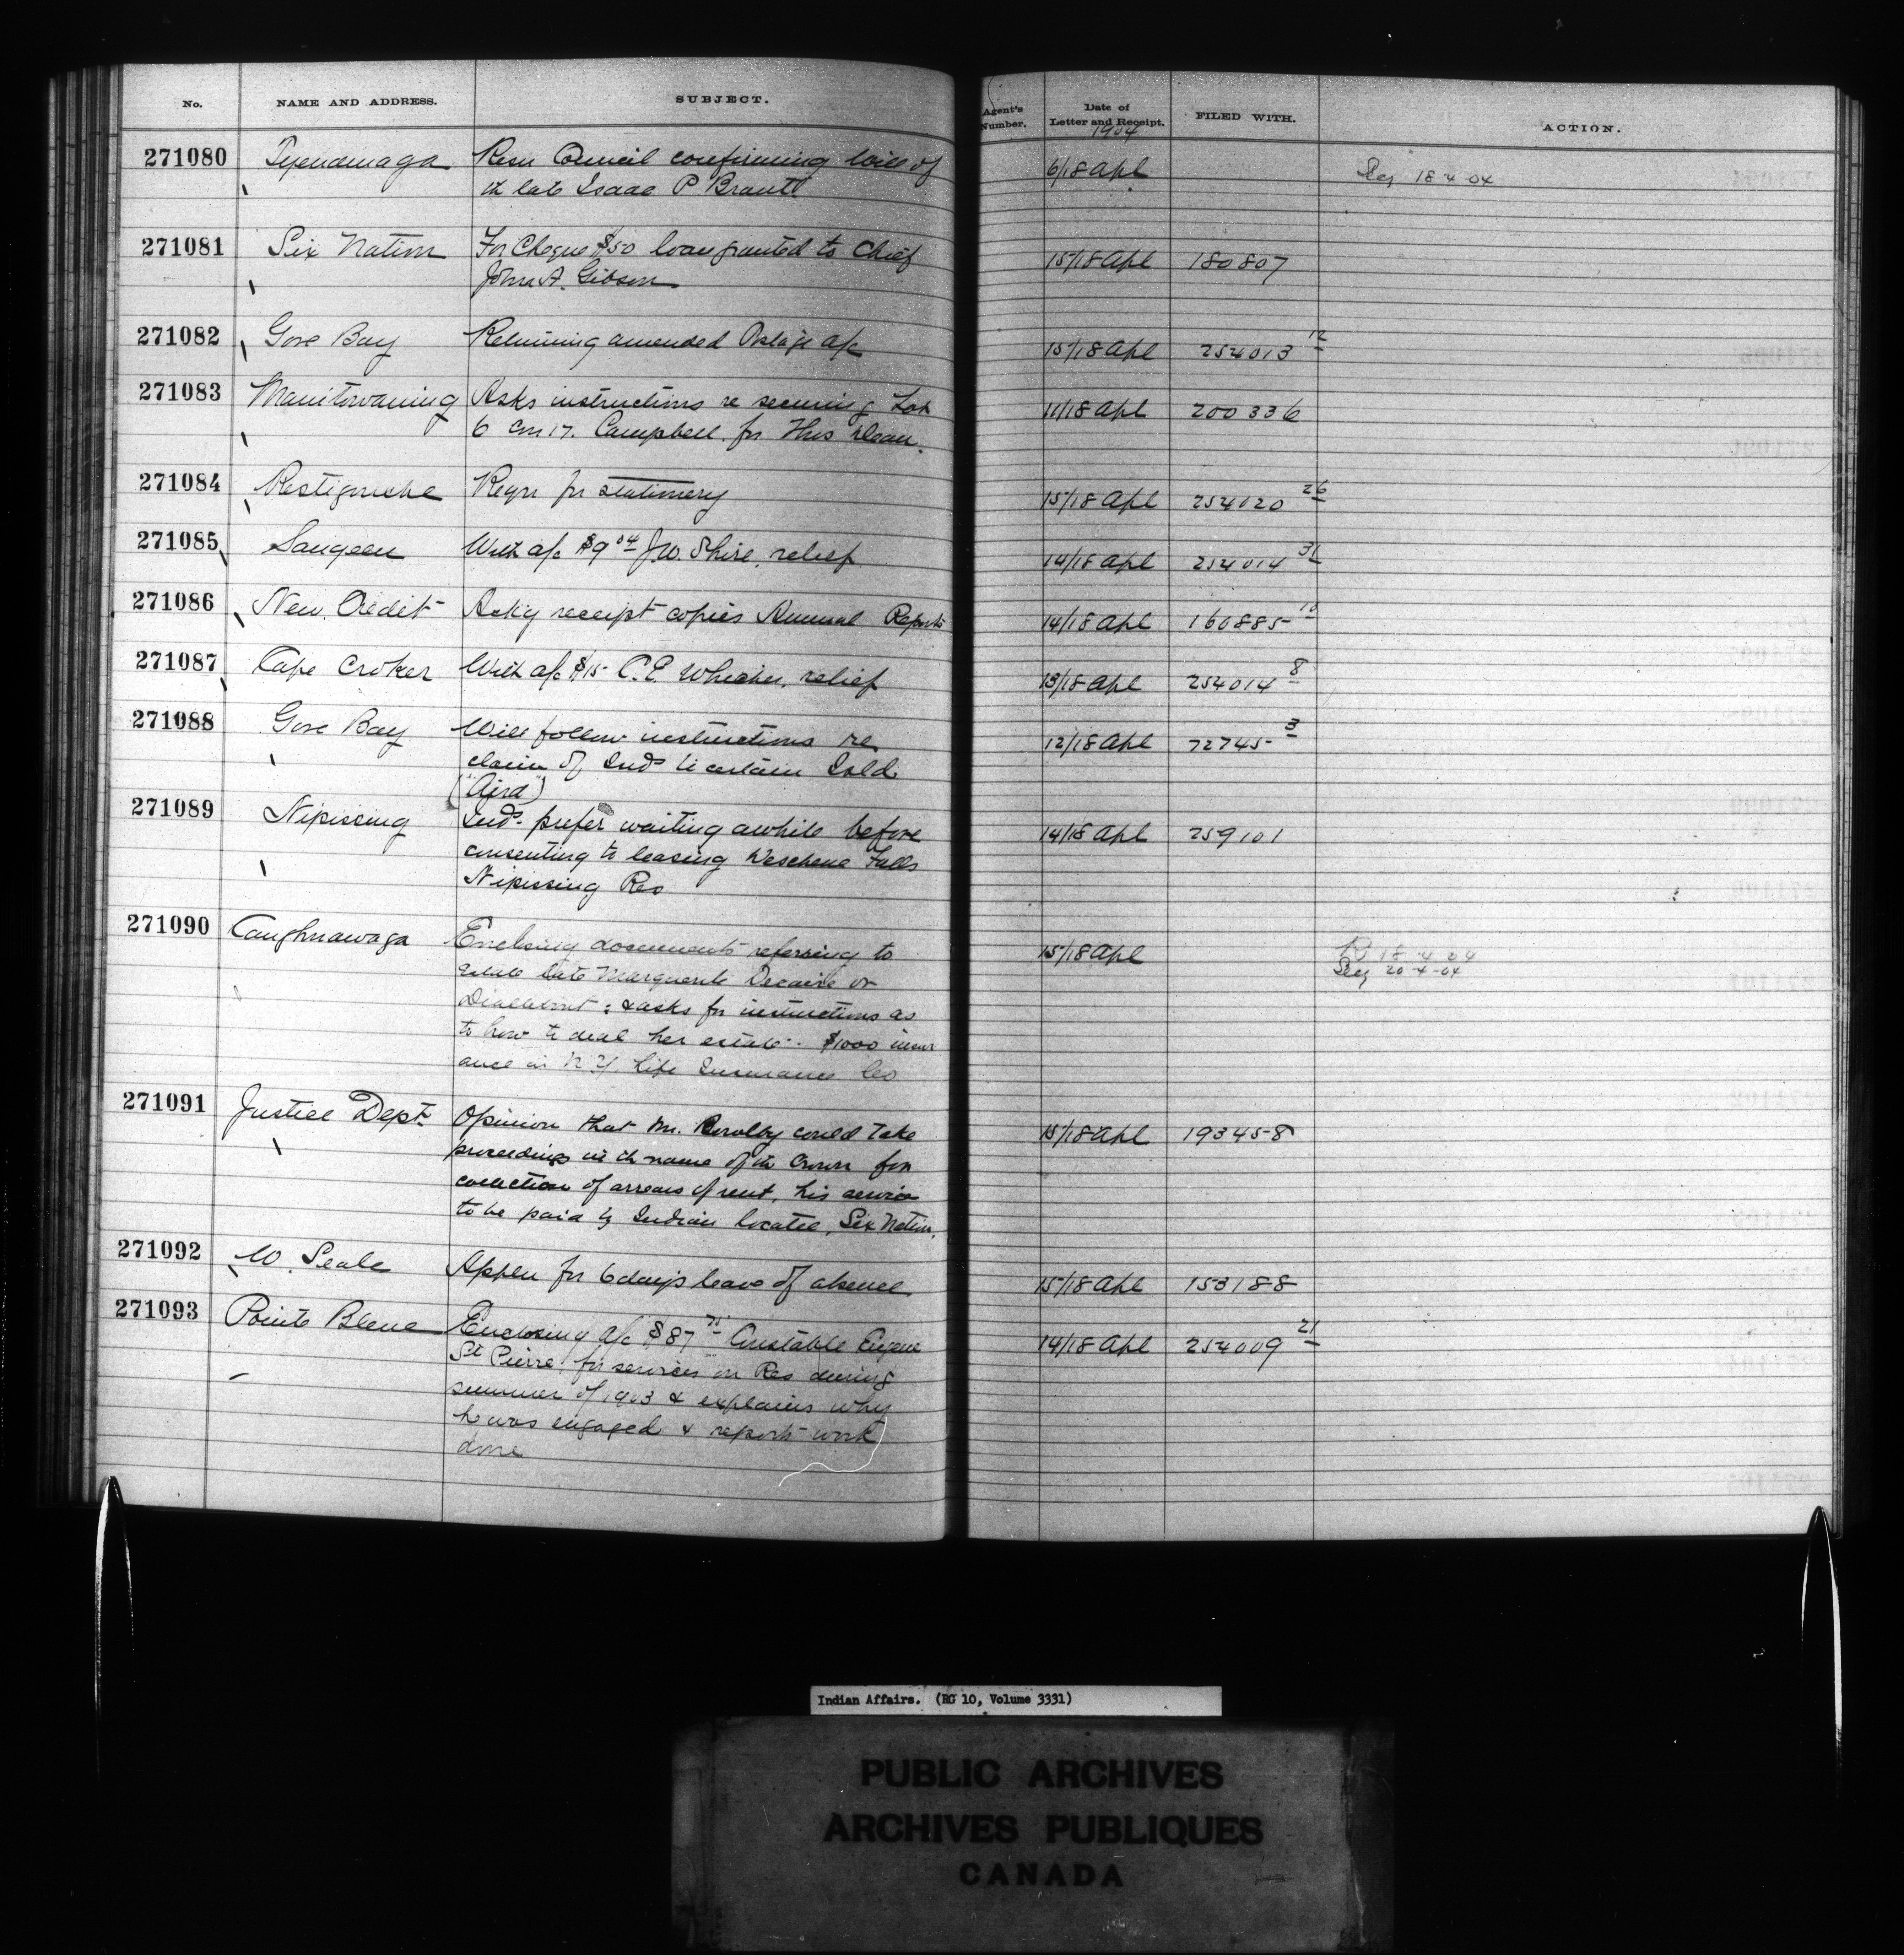 No. NAME AND ADDRESS. SUBJECT. Agent's Number. Date of Letter and Receipt. FILED WITH. ACTION.
1904
271080 Tyendinaga Resn Council confirming will of 6/18 Apl Reg 18-4-04
th late Isaac P Brant
271081 Six Nation For Cheque $50 loan granted to Chief 15/18 Apl 180807
John A. Gibson
271082 Gore Bay Returning amended Postage a/c 15/18 Apl 254013 12
271083 Manitowaning Asks instructions re securing Lot 11/18 Apl 200336
6 Con 17. Campbell. for Thos
271084 Restigouche Reqn for stationery 15/18 Apl 254020 26
271085 Saugeen With a/c $9 04 J.W. Shire, relief 14/18 Apl 254014 31
271086 New Credit Ackg receipt copies Annual Reports 14/18 Apl 160885 10
271087 Cape Croker With a/c $15 C.E. Whicher, relief 13/18 Apl 254014 8
271088 Gore Bay Will follow instructions re 12/18 Apl 72745 3
claim of Inds to certain Isld
271089 Nipissing Inds prefer waiting awhile before 14/18 Apl 259101
consenting to leasing Falls
Nipissing Res
271090 Caughnawaga Enclosing documents referring to 15/18 Apl R 18-4-04
estate late Marguerite Decaire or Reg 20-4-04
: & asks for instructions as
to how to deal her estate. $1000 insur
ance in N.Y. Life Insurance Co
271091 Justice Dept Opinion that Mr. could take 15/18 Apl 193458
proceedings in th name of th Crown for
collection of arrears of rent, his service
to be paid by Indian locatee, Six Nation.
271092 W. Seale Appln for 6 days leave of absence 15/18 Apl 153188
271093 Pointe Bleue Enclosing a/c $87 75 Constable Eugene 14/18 Apl 254009 21
St Pierre for services on Res during
summer of 1903 & explains why
he was engaged & reports work
done
Indian Affairs. (RG 10, Volume 3331)
PUBLIC ARCHIVES
ARCHIVES PUBLIQUES
CANADA